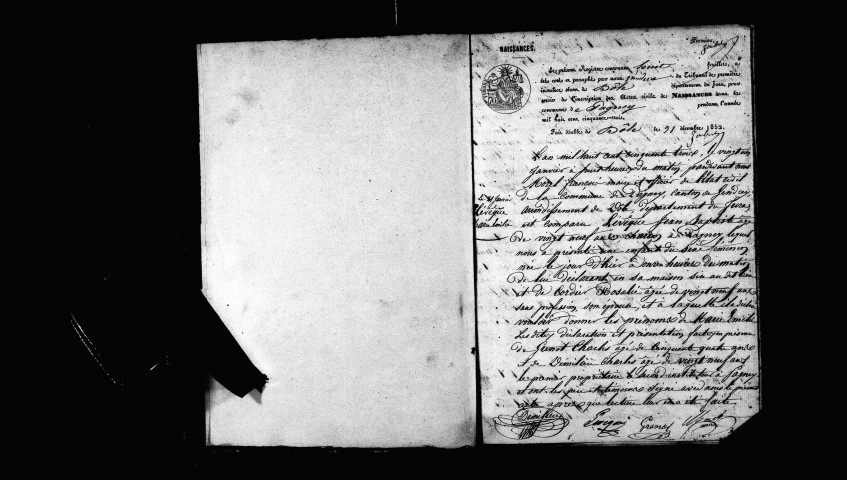 NAISSANCES.
Premier
Le présent Registre contenant huit feuillets, a
été coté et paraphé par nous du Tribunal de première
instance séant de Dôle département du Jura, pour
servir à l'inscription des Actes civils de NAISSANCES dans la
commune de pendant l'année
mil huit cent cinquante-trois.
Fait double à Dôle le 21 décembre 1852.
L'an mil huit cent cinquante trois, le vingt un
janvier à huit heures du matin pardevant nous
Morel françois maire et officier de l'état civil
de la Commune de Pagney, canton de Gendrey
arrondissement de Dôle, département du Jura
Lévêque
est comparu Lévêque Jean Baptiste âgé
de vingt neuf ans à Pagney, lequel
nous a présenté une enfant du sexe féminin
née le jour d'hier à onze heures du matin
de lui déclarant en sa maison sise au dit lieu
et de Cordier Rosalie âgée de vingt neuf ans
sans profession, son épouse, et à laquelle il a déclaré
vouloir donner les prénoms de Marie Emilie
Les dites déclaration et présentation faites en présence
de Charles âgé de cinquante quatre ans
et de Charles âgé de vingt neuf ans
le premier propriétaire le second instituteur à Pagney
et ont les père et témoins signé avec nous le présent
acte après que lecture leur en a été faite.